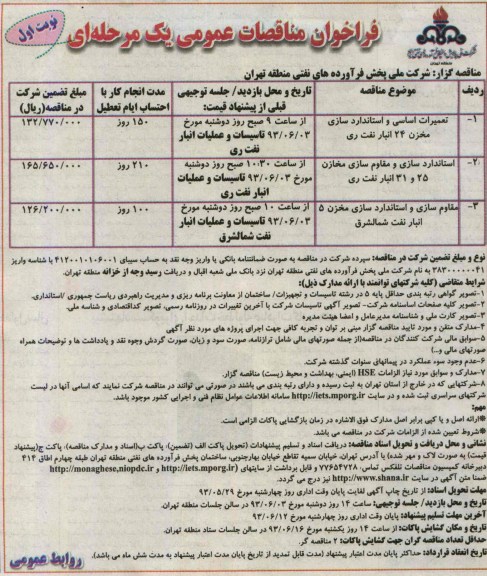 نوبت اول
فراخوان مناقصات عمومی یک مرحله‌ای
مناقصه گزار: شرکت ملی پخش فرآورده های نفتی منطقه تهران
ردیف موضوع مناقصه تاریخ و محل بازدید/ جلسه توجیهی قبلی از پیشنهاد قیمت: مدت انجام کار با احتساب ایام تعطیل مبلغ تضمین شرکت در مناقصه(ریال)
۱- تعمیرات اساسی و استاندارد سازی مخزن ۲۴ انبار نفت ری از ساعت ۹ صبح روز دوشنبه مورخ ۹۳/۰۶/۰۳ تاسیسات و عملیات انبار نفت ری ۱۵۰ روز ۱۳۲/۷۷۰/۰۰۰
۲- استاندارد سازی و مقاوم سازی مخازن ۲۵ و ۳۱ انبار نفت ری از ساعت ۱۰:۳۰ صبح روز دوشنبه مورخ ۹۳/۰۶/۰۳ تاسیسات و عملیات انبار نفت ری ۲۱۰ روز ۱۶۵/۶۵۰/۰۰۰
۳- مقاوم سازی و استاندارد سازی مخزن ۵ انبار نفت شمالشرق از ساعت ۱۰ صبح روز دوشنبه مورخ ۹۳/۰۶/۰۳ تاسیسات و عملیات انبار نفت شمالشرق ۱۰۰ روز ۱۲۶/۲۰۰/۰۰۰
نوع و مبلغ تضمین شرکت در مناقصه: سپرده شرکت در مناقصه به صورت ضمانتنامه بانکی یا واریز وجه نقد به حساب سیبای ۴۱۲۰۰۱۰۱۰۶۰۰۱ با شناسه واریز
۳۸۳۰۰۰۰۰۰۴۱ به نام شرکت ملی پخش فرآورده های نفتی منطقه تهران نزد بانک ملی شعبه اقبال و دریافت رسید وجه از خزانه منطقه تهران.
شرایط متقاضی (کلیه شرکتهای توانمند با ارائه مدارک ذیل):
۱-تصویر گواهی رتبه بندی حداقل پایه ۵ در رشته تاسیسات و تجهیزات/ ساختمان از معاونت برنامه ریزی و مدیریت راهبردی ریاست جمهوری /استانداری.
۲-تصویر کلیه صفحات اساسنامه شرکت- تصویر آگهی تاسیسات شرکت با آخرین تغییرات در روزنامه رسمی، تصویر کداقتصادی و شناسه ملی
۳-تصویر کارت ملی و شناسنامه مدیرعامل و اعضا هیئت مدیره
۴-مدارک متقن و مورد تایید مناقصه گزار مبنی بر توان و تجربه کافی جهت اجرای پروژه های مورد نظر آگهی
۵-سوابق مالی شرکت کنندگان در مناقصه(از جمله صورتهای مالی شامل ترازنامه، صورت سود و زیان، صورت گردش وجوه نقد و یادداشت ها و توضیحات همراه
صورتهای مالی و..)
۶-عدم وجود سوء عملکرد در پیمانهای سنوات گذشته شرکت.
۷-مدارک و سوابق مورد نیاز الزامات HSE (ایمنی، بهداشت و محیط زیست) مناقصه گزار.
۸-شرکتهایی که در خارج از استان تهران به ثبت رسیده و دارای رتبه بندی می باشند در صورتی می توانند در مناقصه شرکت نمایند که اسامی آنها در لیست
شرکتهای سراسری ثبت شده و در سایت http://iets.mporg.ir سامانه اطلاعات عوامل نظام فنی و اجرایی کشور موجود باشد.
مهم:
*ارائه اصل و یا کپی برابر اصل مدارک فوق الاشاره در زمان بازگشایی پاکات الزامی است.
*شروط تعیین شده از الزامات شرکت در مناقصه می باشد.
نشانی و محل دریافت و تحویل اسناد مناقصه: دریافت اسناد و تسلیم پیشنهادات (تحویل پاکت الف (تضمین)، پاکت ب(اسناد و مدارک مناقصه)، پاکت ج(پیشنهاد
قیمت) به صورت لاک و مهر شده) با آدرس تهران، خیابان سمیه تقاطع خیابان بهارجنوبی، ساختمان پخش فرآورده های نفتی منطقه تهران طبقه چهارم اطاق ۴۱۴
دبیرخانه کمیسیون مناقصات تلفکس تماس، ۷۷۶۵۴۷۲۸ و قابل برداشت از سایتهای (http://iets.mporg.ir) و http://monaghese,niopdc.ir
ضمنا متن آگهی در سایت http://www.shana.ir نیز درج می گردد.
مهلت تحویل اسناد: از تاریخ چاپ آگهی لغایت پایان وقت اداری روز چهارشنبه مورخ ۹۳/۰۵/۲۹
تاریخ و محل بازدید/ جلسه توجیهی: ساعت ۱۴ روز دوشنبه مورخ ۹۳/۰۶/۰۳ در سالن جلسات منطقه تهران.
آخرین مهلت تسلیم پیشنهاد: پایان وقت اداری روز چهارشنبه مورخ ۹۳/۰۶/۱۲
تاریخ و مکان گشایش پاکات: از ساعت ۱۴ روز یکشنبه مورخ ۹۳/۰۶/۱۶ در سالن جلسات ستاد منطقه تهران.
حداقل تعداد مناقصه گران جهت گشایش پاکات: ۲ مناقصه گر.
تاریخ انعقاد قرارداد: حداکثر پایان مدت اعتبار پیشنهاد (مدت قابل تمدید از تاریخ پایان مدت اعتبار پیشنهاد به مدت شش ماه می باشد).
روابط عمومی